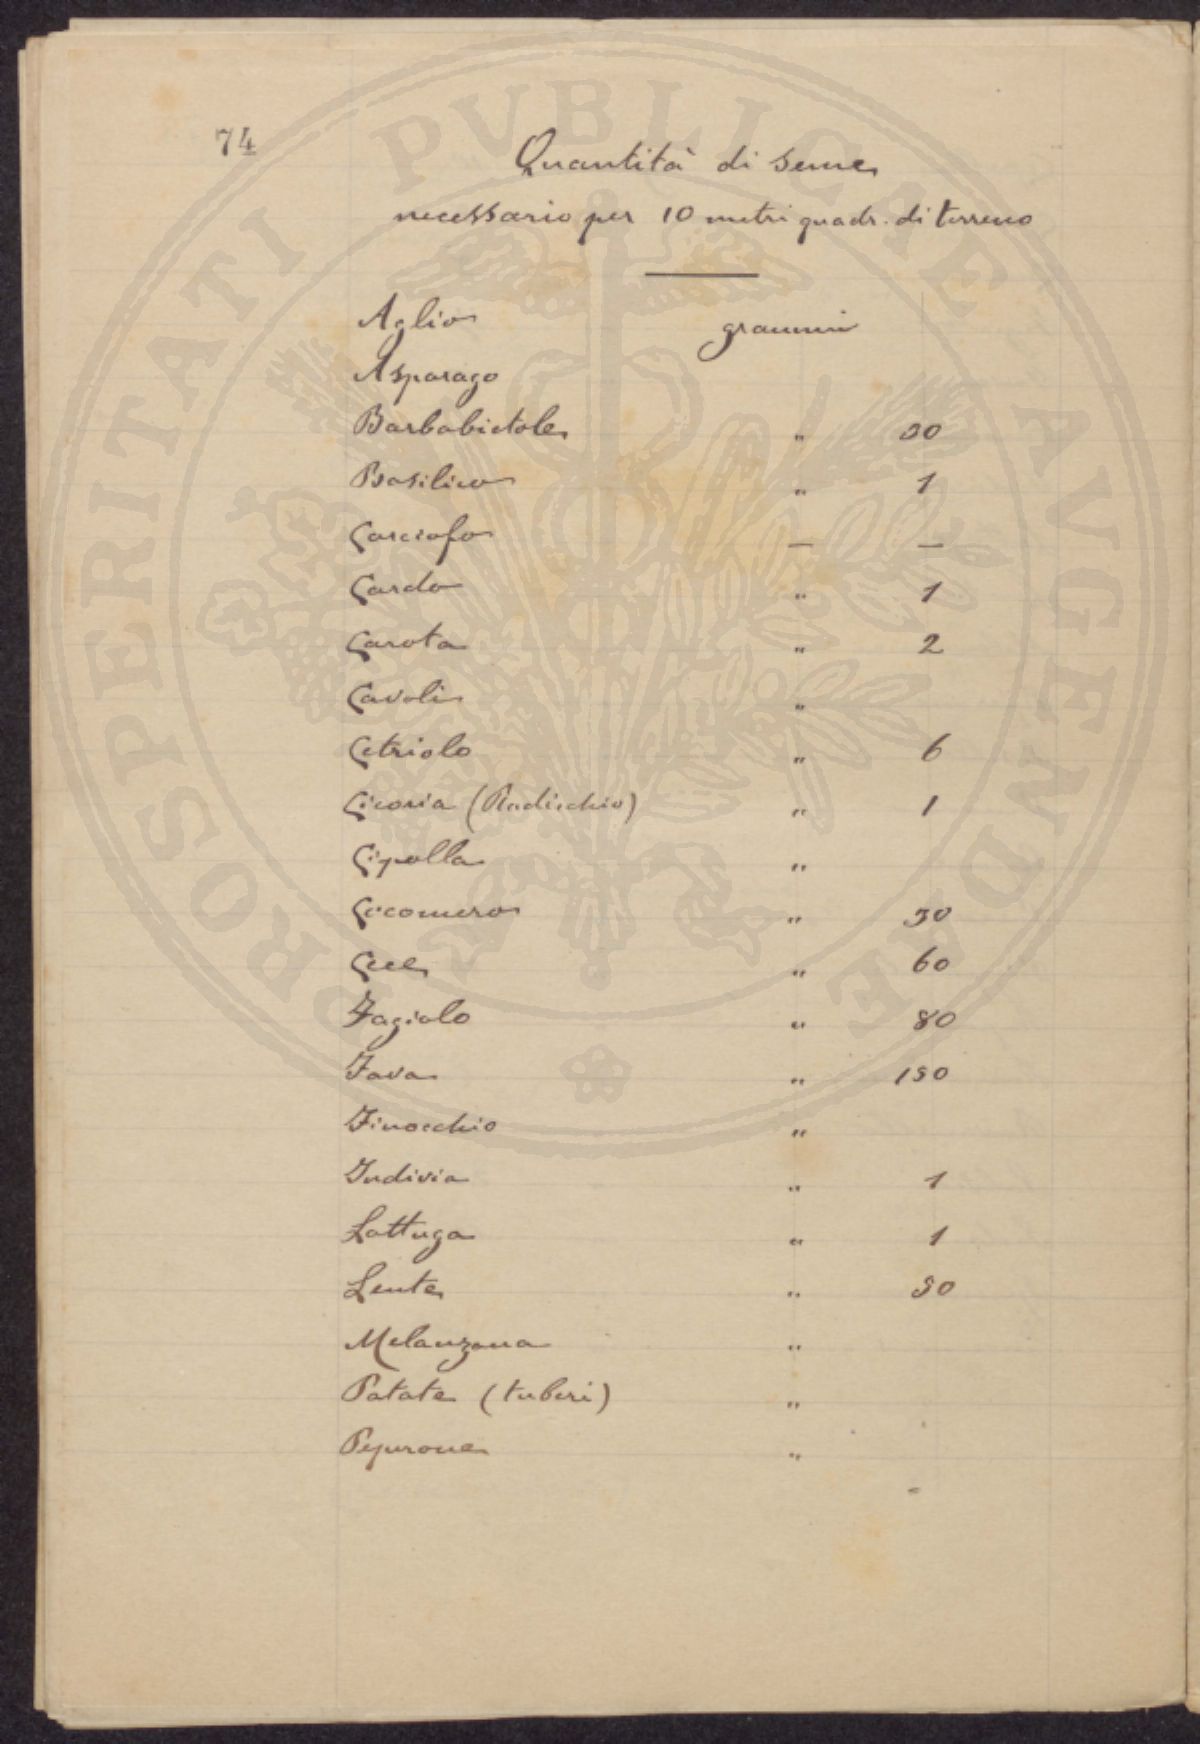 74
Quantità di seme
necessario per 10 metri quadr. di terreno
Aglio grammi
Asparago
Barbabietole " 30
Basilico " 1
Carciofo — —
Cardo " 1
Carota " 2
Cavoli "
Cetriolo " 6
Cicoria (Radicchio) " 1
Cipolla "
Cocomero " 30
Cece " 60
Fagiolo " 80
Fava " 150
Finocchio "
Indivia " 1
Lattuga " 1
Lente " 50
Melanzana "
Patate (tuberi) "
Peperone "
PROSPERITATI PVBLICAE AVGENDAE